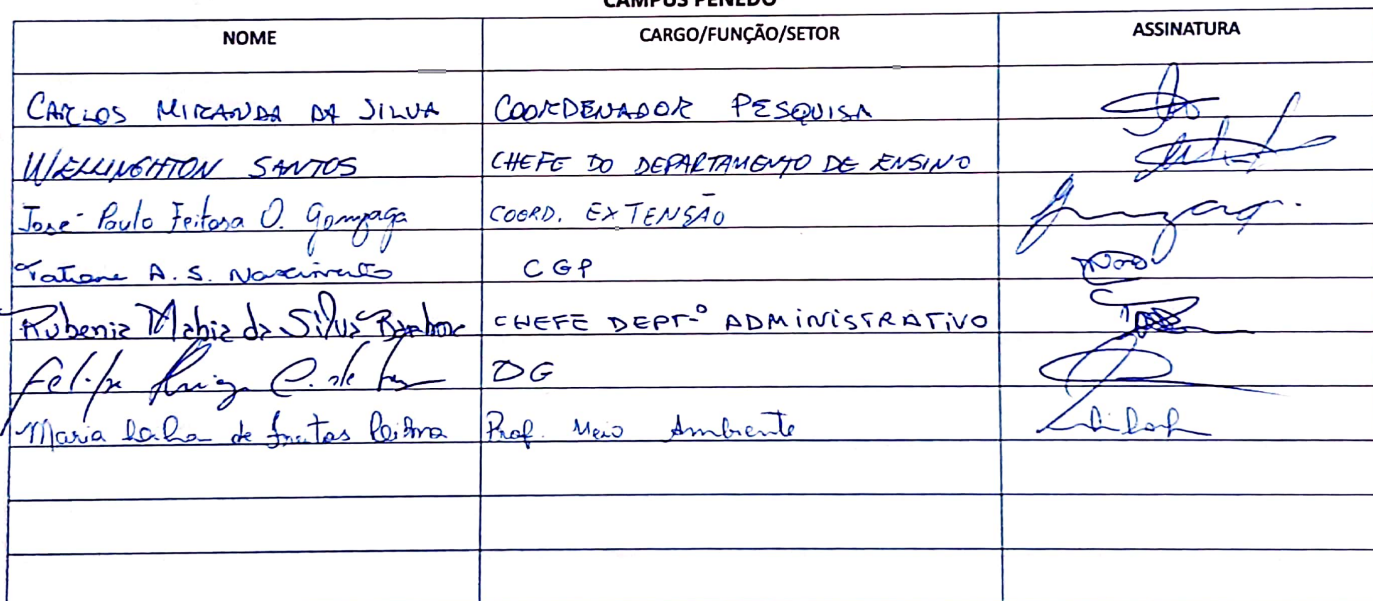 CAMPUS PENEDO
NOME CARGO/FUNÇÃO/SETOR ASSINATURA
CARLOS MIRANDA DA SILVA COORDENADOR PESQUISA
WELLINGHTON SANTOS CHEFE DO DEPARTAMENTO DE ENSINO
José Paulo Feitosa O. Gonzaga COORD. EXTENSÃO
Tatiane A. S. Nascimento CGP
Rubenia da Silva CHEFE DEPTº ADMINISTRATIVO
Felipe DG
Maria de freitas Prof. Meio Ambiente